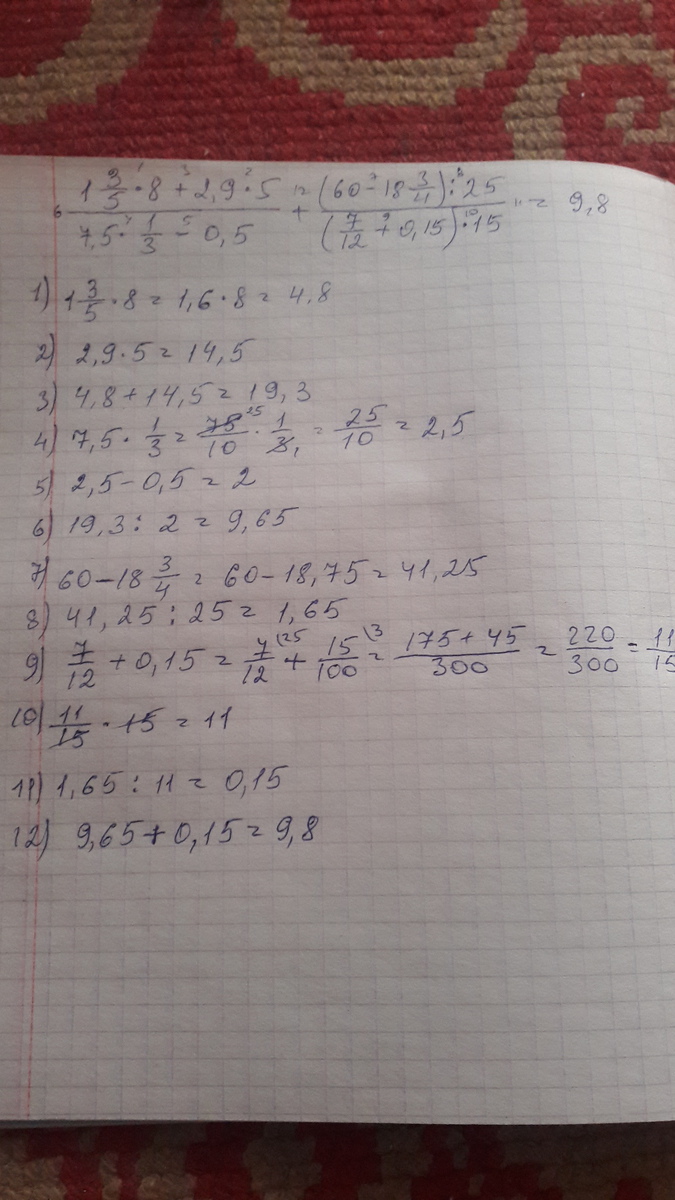 (1 3/5 · 8 + 2,9 · 5)/(7,5 · 1/3 - 0,5) + ((60 - 18 3/4) : 25)/((7/12 + 0,15) · 15) = 9,8
1) 1 3/5 · 8 = 1,6 · 8 = 4,8
2) 2,9 · 5 = 14,5
3) 4,8 + 14,5 = 19,3
4) 7,5 · 1/3 = 75/10 · 1/3 = 25/10 = 2,5
5) 2,5 - 0,5 = 2
6) 19,3 : 2 = 9,65
7) 60 - 18 3/4 = 60 - 18,75 = 41,25
8) 41,25 : 25 = 1,65
9) 7/12 + 0,15 = 7/12 \25 + 15/100 \3 = (175 + 45)/300 = 220/300 = 11/15
10) 11/15 · 15 = 11
11) 1,65 : 11 = 0,15
12) 9,65 + 0,15 = 9,8